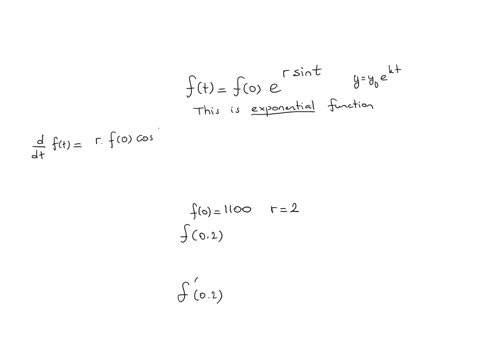 f(t) = f(0) e^{r sin t}    y = y₀ e^{kt}
This is exponential function
d/dt f(t) = r. f(0) cos
f(0) = 1100    r = 2
f(0.2)
f′(0.2)